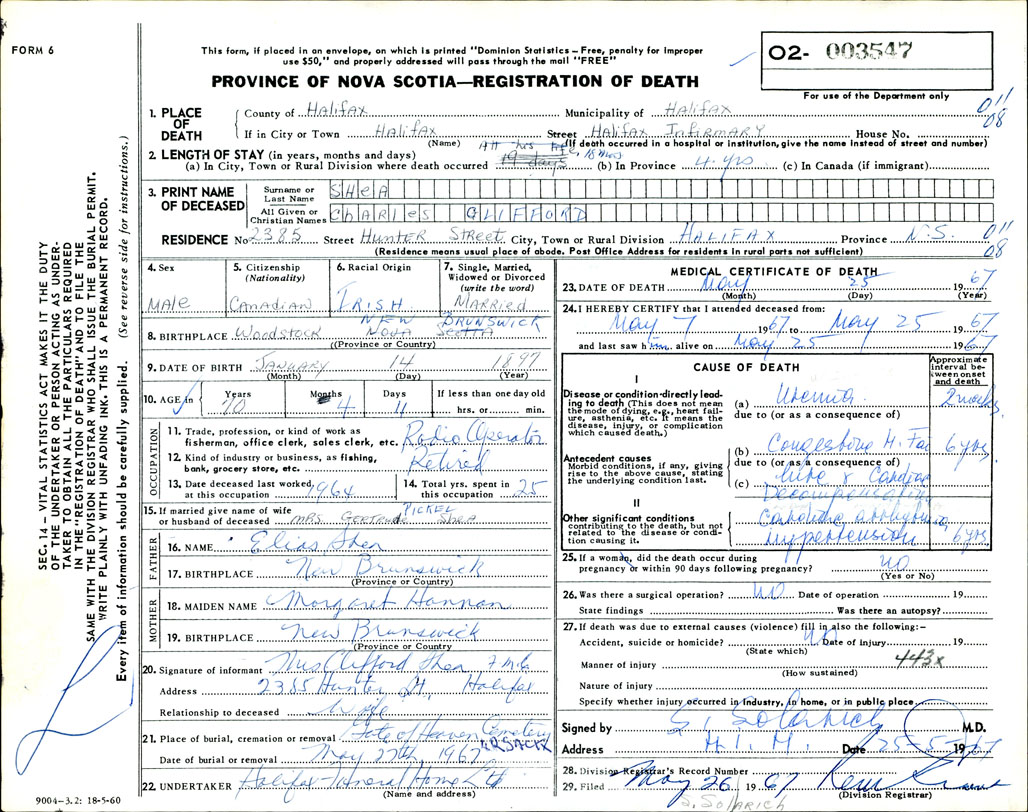 FORM 6
This form, if placed in an envelope, on which is printed "Dominion Statistics – Free, penalty for improper
use $50," and properly addressed will pass through the mail "FREE"
O2- 003547
PROVINCE OF NOVA SCOTIA—REGISTRATION OF DEATH
For use of the Department only
SEC. 14 – VITAL STATISTICS ACT MAKES IT THE DUTY
OF THE UNDERTAKER OR PERSON ACTING AS UNDER-
TAKER TO OBTAIN ALL THE PARTICULARS REQUIRED
IN THE "REGISTRATION OF DEATH" AND TO FILE THE
SAME WITH THE DIVISION REGISTRAR WHO SHALL ISSUE THE BURIAL PERMIT.
WRITE PLAINLY WITH UNFADING INK. THIS IS A PERMANENT RECORD.
Every item of information should be carefully supplied. (See reverse side for instructions.)
1. PLACE OF DEATH
County of Halifax Municipality of Halifax 011
08
If in City or Town Halifax Street Halifax Infirmary House No.
(Name) (If death occurred in a hospital or institution, give the name instead of street and number)
2. LENGTH OF STAY (in years, months and days)
(a) In City, Town or Rural Division where death occurred 19 days 18 mos (b) In Province 4 yrs (c) In Canada (if immigrant)
3. PRINT NAME OF DECEASED
Surname or Last Name SHeA
All Given or Christian Names Charles CLIFFORD
RESIDENCE No 2385 Street Hunter Street City, Town or Rural Division HALIFAX Province N.S. 011
08
(Residence means usual place of abode. Post Office Address for residents in rural parts not sufficient)
4. Sex
Male
5. Citizenship
(Nationality)
Canadian
6. Racial Origin
IRISH
7. Single, Married,
Widowed or Divorced
(write the word)
Married
8. BIRTHPLACE Woodstock Nova Scotia NEW BRUNSWICK
(Province or Country)
9. DATE OF BIRTH January 14 1897
(Month) (Day) (Year)
10. AGE in Years 70 Months 4 Days 11 If less than one day old
hrs. or min.
OCCUPATION
11. Trade, profession, or kind of work as
fisherman, office clerk, sales clerk, etc. Radio Operator
12. Kind of industry or business, as fishing,
bank, grocery store, etc. Retired
13. Date deceased last worked
at this occupation 1964
14. Total yrs. spent in
this occupation 25
15. If married give name of wife
or husband of deceased Mrs Gertrude PICKEL Shea
FATHER
16. NAME Elias Shea
17. BIRTHPLACE New Brunswick
(Province or Country)
MOTHER
18. MAIDEN NAME Margaret Hannan
19. BIRTHPLACE New Brunswick
(Province or Country)
20. Signature of informant Mrs Clifford Shea
Address 2385 Hunter St, Halifax
Relationship to deceased Wife
21. Place of burial, cremation or removal Gate of Heaven Cemetery
Date of burial or removal May 27th, 1967
22. UNDERTAKER Halifax Funeral Home Ltd
(Name and address)
9004–3.2: 18-5-60
MEDICAL CERTIFICATE OF DEATH
23. DATE OF DEATH May 25 1967
(Month) (Day) (Year)
24. I HEREBY CERTIFY that I attended deceased from:
May 7 1967 to May 25 1967
and last saw him alive on May 25 1967
CAUSE OF DEATH
Approximate interval between onset and death
I
Disease or condition directly leading to death (This does not mean the mode of dying, e.g., heart failure, asthenia, etc. It means the disease, injury, or complication which caused death.)
(a) Uremia 2 weeks
due to (or as a consequence of)
Antecedent causes
Morbid conditions, if any, giving rise to the above cause, stating the underlying condition last.
(b) Congestive H. Fai 6 yrs
due to (or as a consequence of)
(c) Cardiac
Decompensation
II
Other significant conditions
contributing to the death, but not related to the disease or condition causing it.
Hypertension 6 yrs
25. If a woman, did the death occur during
pregnancy or within 90 days following pregnancy? NO
(Yes or No)
26. Was there a surgical operation? NO Date of operation 19
State findings Was there an autopsy?
27. If death was due to external causes (violence) fill in also the following:–
Accident, suicide or homicide? NO Date of injury 19
(State which) 443x
Manner of injury
(How sustained)
Nature of injury
Specify whether injury occurred in industry, in home, or in public place
Signed by S. Solarich M.D.
Address H.I.H. Date 25-5-1967
28. Division Registrar's Record Number
29. Filed May 26 1967
(Division Registrar)
S. SOLARICH